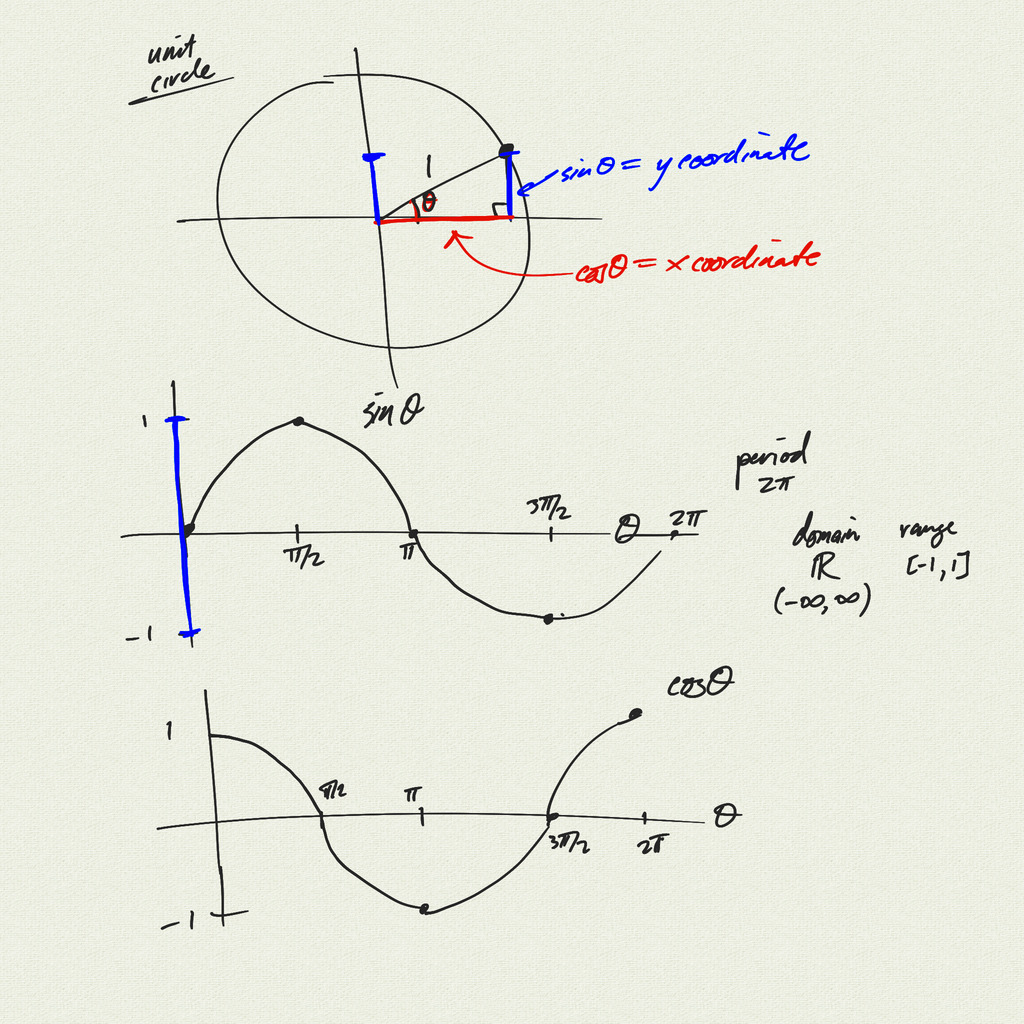 unit
circle
1
θ
sin θ = y coordinate
cos θ = x coordinate
sin θ
1
π/2
π
3π/2
θ
2π
-1
period
2π
domain
range
ℝ
[-1, 1]
(-∞, ∞)
cos θ
1
π/2
π
3π/2
2π
θ
-1